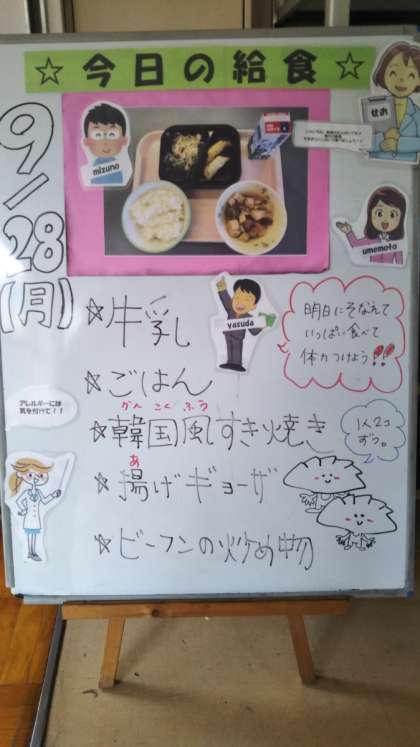 ☆今日の給食☆
9/28(月)
mizuno
せお
umemoto
yasuda
明日にそなえて
いっぱい食べて
体力つけよう!!
☆牛乳
☆ごはん
かんこくふう
☆韓国風すき焼き
1人2コ
ずつ。
あ
☆揚げギョーザ
☆ビーフンの炒め物
アレルギーには
気を付けて!!